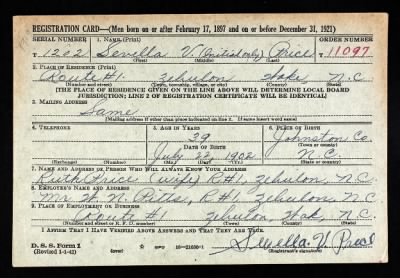 REGISTRATION CARD—(Men born on or after February 17, 1897 and on or before December 31, 1921)
SERIAL NUMBER 1. NAME (Print) ORDER NUMBER
T 1202 Sevilla V. (initial only) Price 11097
(First) (Middle) (Last)
2. PLACE OF RESIDENCE (Print)
Route #1. Zebulon, Wake, N.C.
(Number and street) (Town, township, village, or city) (County) (State)
[THE PLACE OF RESIDENCE GIVEN ON THE LINE ABOVE WILL DETERMINE LOCAL BOARD
JURISDICTION; LINE 2 OF REGISTRATION CERTIFICATE WILL BE IDENTICAL]
3. MAILING ADDRESS
Same
[Mailing address if other than place indicated on line 2. If same insert word same]
4. TELEPHONE 5. AGE IN YEARS 6. PLACE OF BIRTH
39 Johnston Co.
DATE OF BIRTH (Town or county)
July 22, 1902 N.C.
(Exchange) (Number) (Mo.) (Day) (Yr.) (State or country)
7. NAME AND ADDRESS OF PERSON WHO WILL ALWAYS KNOW YOUR ADDRESS
Ruth Price (wife) R#1, Zebulon, N.C.
8. EMPLOYER'S NAME AND ADDRESS
Mr. Pitts, R#1, Zebulon, N.C.
9. PLACE OF EMPLOYMENT OR BUSINESS
Route #1 Zebulon, Wake, N.C.
(Number and street or R. F. D. number) (Town) (County) (State)
I AFFIRM THAT I HAVE VERIFIED ABOVE ANSWERS AND THAT THEY ARE TRUE.
D. S. S. Form 1
(Revised 1-1-42) (over) 16—21630-1 Sevilla V.
(Registrant's signature)